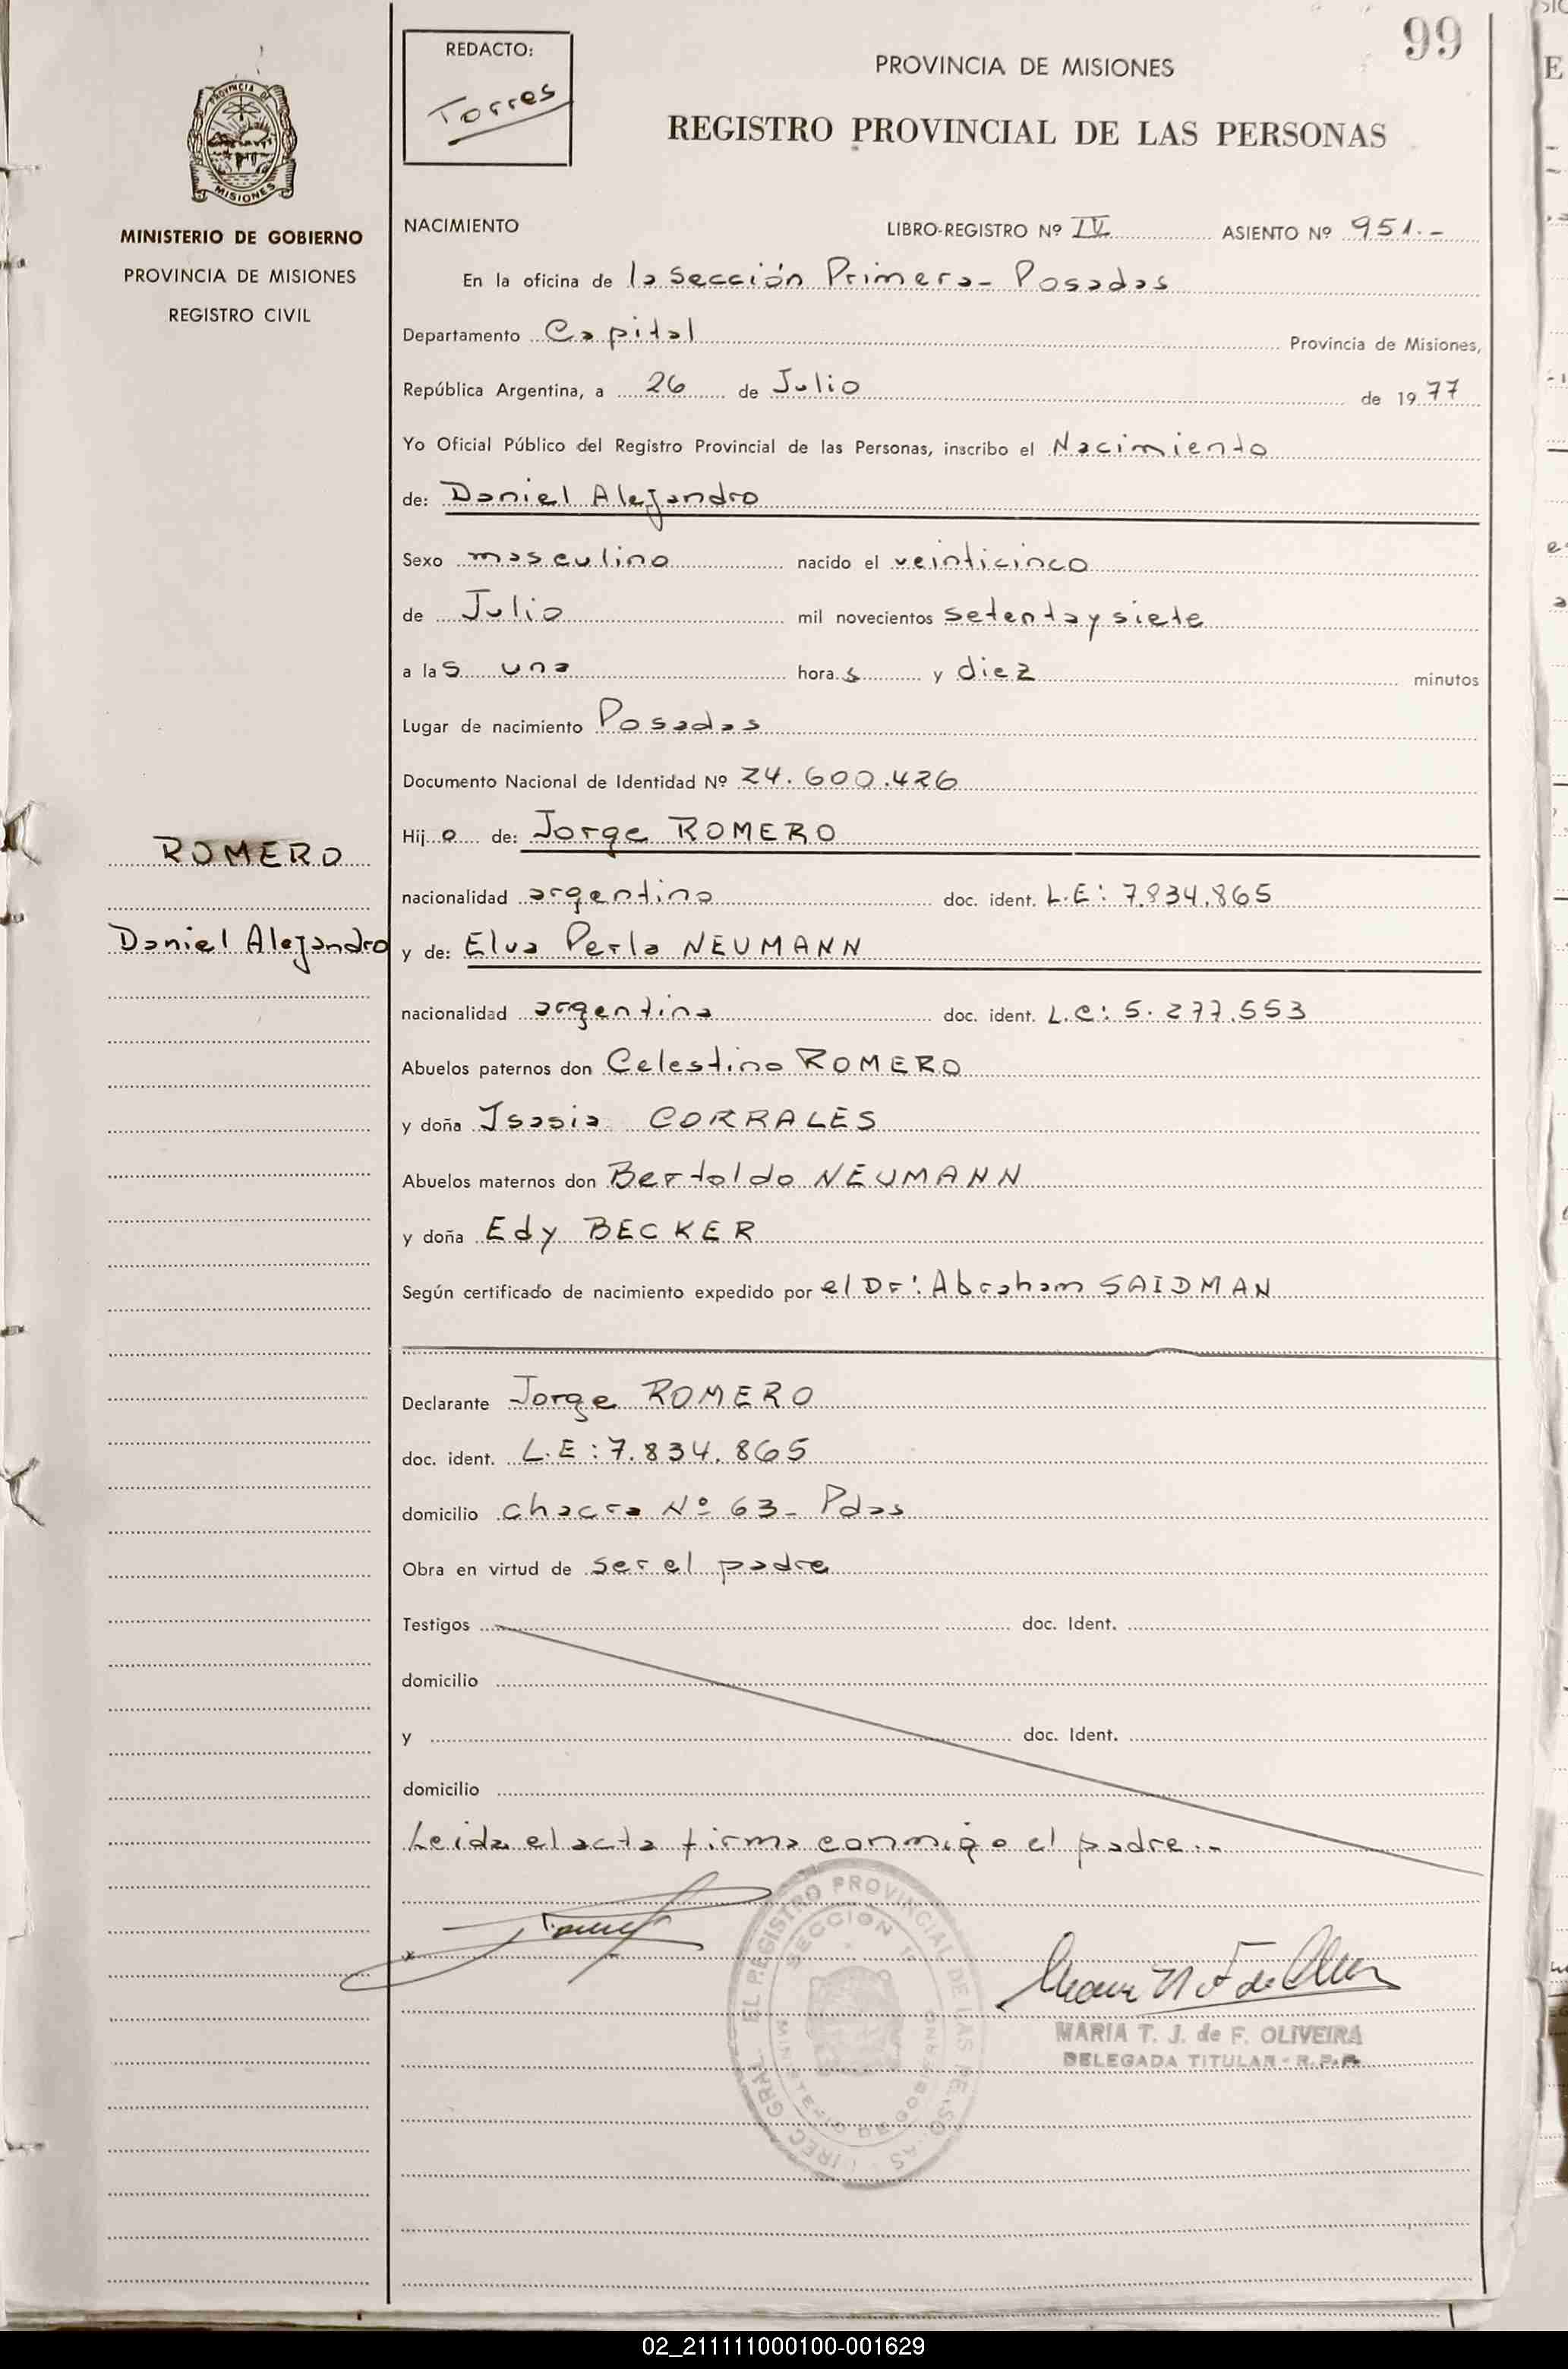 99
REDACTO:
Torres
PROVINCIA DE MISIONES
REGISTRO PROVINCIAL DE LAS PERSONAS
PROVINCIA DE
MISIONES
MINISTERIO DE GOBIERNO
PROVINCIA DE MISIONES
REGISTRO CIVIL
NACIMIENTO LIBRO-REGISTRO Nº IV ASIENTO Nº 951.-
En la oficina de la Sección Primera- Posadas
Departamento Capital Provincia de Misiones,
República Argentina, a 26 de Julio de 1977
Yo Oficial Público del Registro Provincial de las Personas, inscribo el Nacimiento
de: Daniel Alejandro
Sexo masculino nacido el veinticinco
de Julio mil novecientos setenta y siete
a las una horas y diez minutos
Lugar de nacimiento Posadas
Documento Nacional de Identidad Nº 24.600.426
Hijo de: Jorge ROMERO
ROMERO
nacionalidad argentino doc. ident. L.E: 7.834.865
Daniel Alejandro
y de: Elva Perla NEUMANN
nacionalidad argentina doc. ident. L.C: 5.277.553
Abuelos paternos don Celestino ROMERO
y doña Isasia CORRALES
Abuelos maternos don Bertoldo NEUMANN
y doña Edy BECKER
Según certificado de nacimiento expedido por el Dr: Abraham SAIDMAN
Declarante Jorge ROMERO
doc. ident. L.E: 7.834.865
domicilio chacra Nº 63- Pdas
Obra en virtud de ser el padre
Testigos doc. Ident.
domicilio
y doc. Ident.
domicilio
Leida el acta firma conmigo el padre.-
MARIA T. J. de F. OLIVEIRA
DELEGADA TITULAR - R.P.P.
02_211111000100-001629